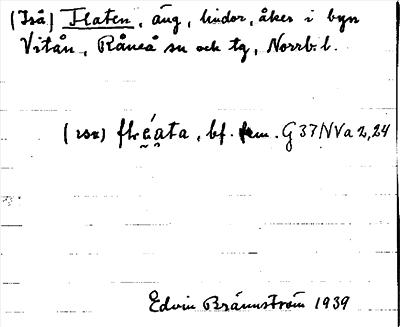 (Iså) Flaten, äng, lindor, åker i byn
Vitån, Råneå sn och tg, Norrb. l.
flɛ́ata, bf. fem. G37NVa 2,24
Edvin Brännström 1939